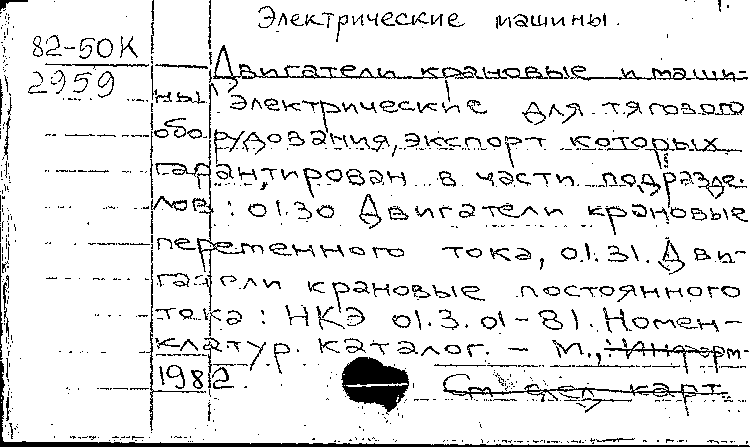 Электрические машины.
82-50К
2959
Двигатели крановые и маши-
ны электрические для тягового
оборудования, экспорт которых
гарантирован в части подразде-
лов: 01.30 Двигатели крановые
переменного тока, 01.31. Дви-
гатели крановые постоянного
тока: НКЭ 01.3.01-81. Номен-
клатур. каталог. - М., Информ-
1982.
См след карт.